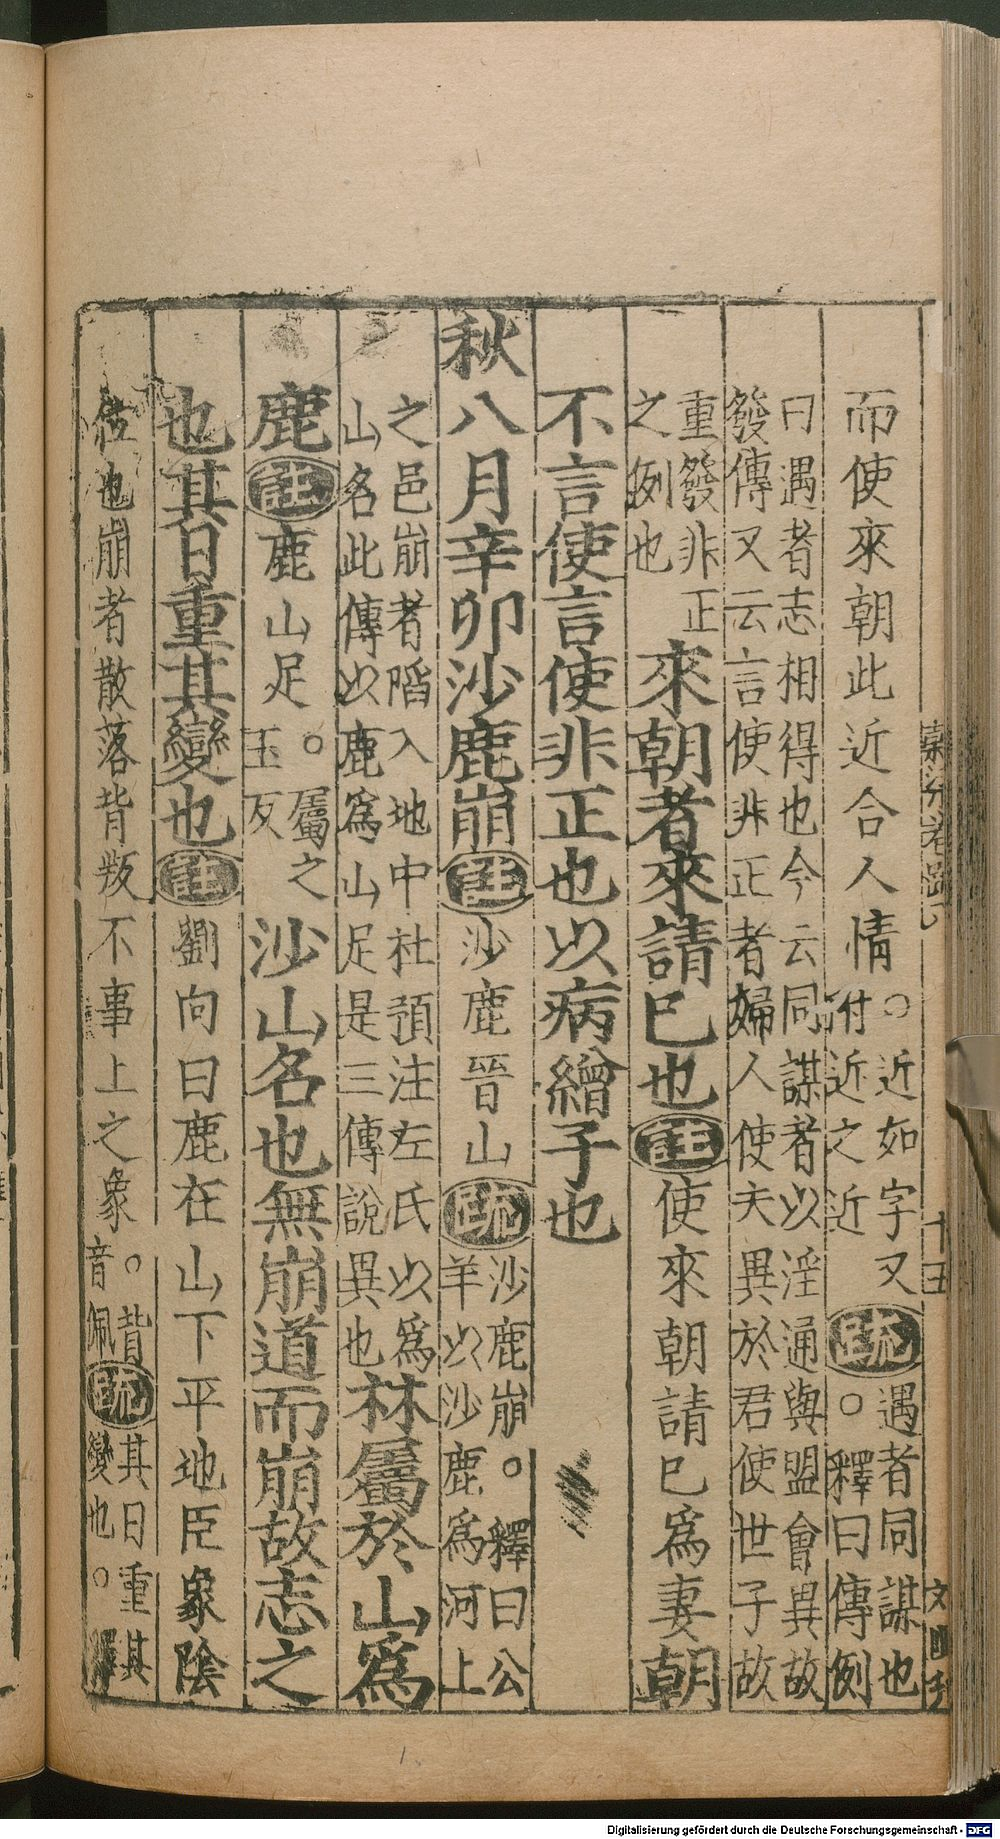 而使來朝此近合人情○近如字又附近之近疏遇者同謀也○釋曰傳例
曰遇者志相得也今云同謀者以淫通與盟會異故
發傳又云言使非正者婦人使夫異於君使世子故
重發非正之例也來朝者來請巳也註使來朝請巳爲妻朝
不言使言使非正也以病繒子也
秋八月辛卯沙鹿崩註沙鹿晉山疏沙鹿崩○釋曰公羊以沙鹿爲河上
之邑崩者陷入地中杜預注左氏以爲山名此傳以鹿爲山足是三傳說異也林屬於山爲
鹿註鹿山足○屬之玉反沙山名也無崩道而崩故志之
也其日重其變也註劉向曰鹿在山下平地臣象陰
位也崩者散落背叛不事上之象○背音佩疏其日重其變也○釋
十五
Digitalisierung gefördert durch die Deutsche Forschungsgemeinschaft - DFG